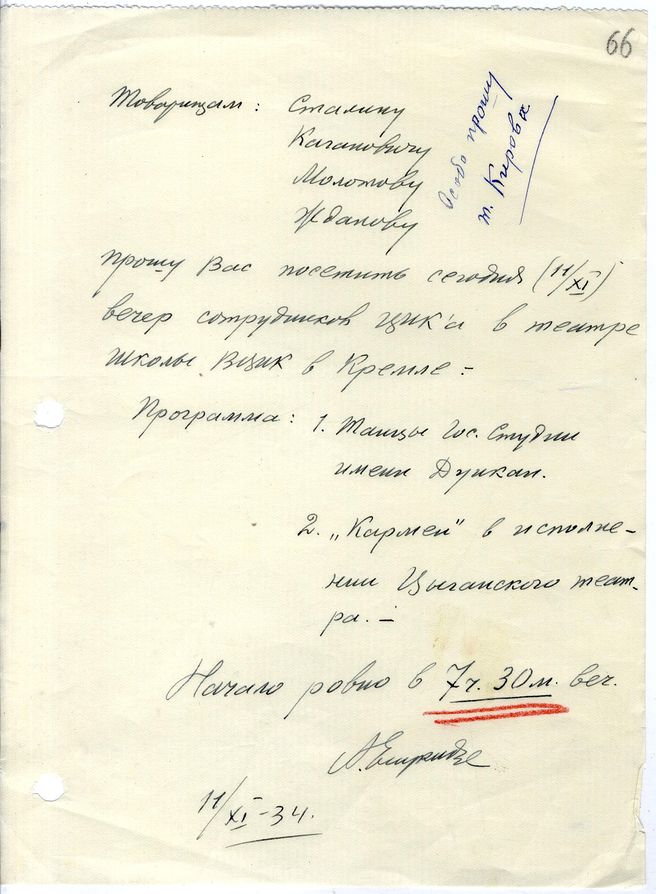 66
Товарищам: Сталину
Кагановичу
Молотову
Жданову
Особо прошу
т. Кирова
прошу Вас посетить сегодня (11/XI)
вечер сотрудников ЦИК'а в театре
школы ВЦИК в Кремле:-
Программа: 1. Танцы Гос. Студии
имени Дункан.
2. „Кармен" в исполне-
нии Цыганского теат-
ра. –
Начало ровно в 7ч. 30м. веч.
А. Енукидзе
11/XI-34.